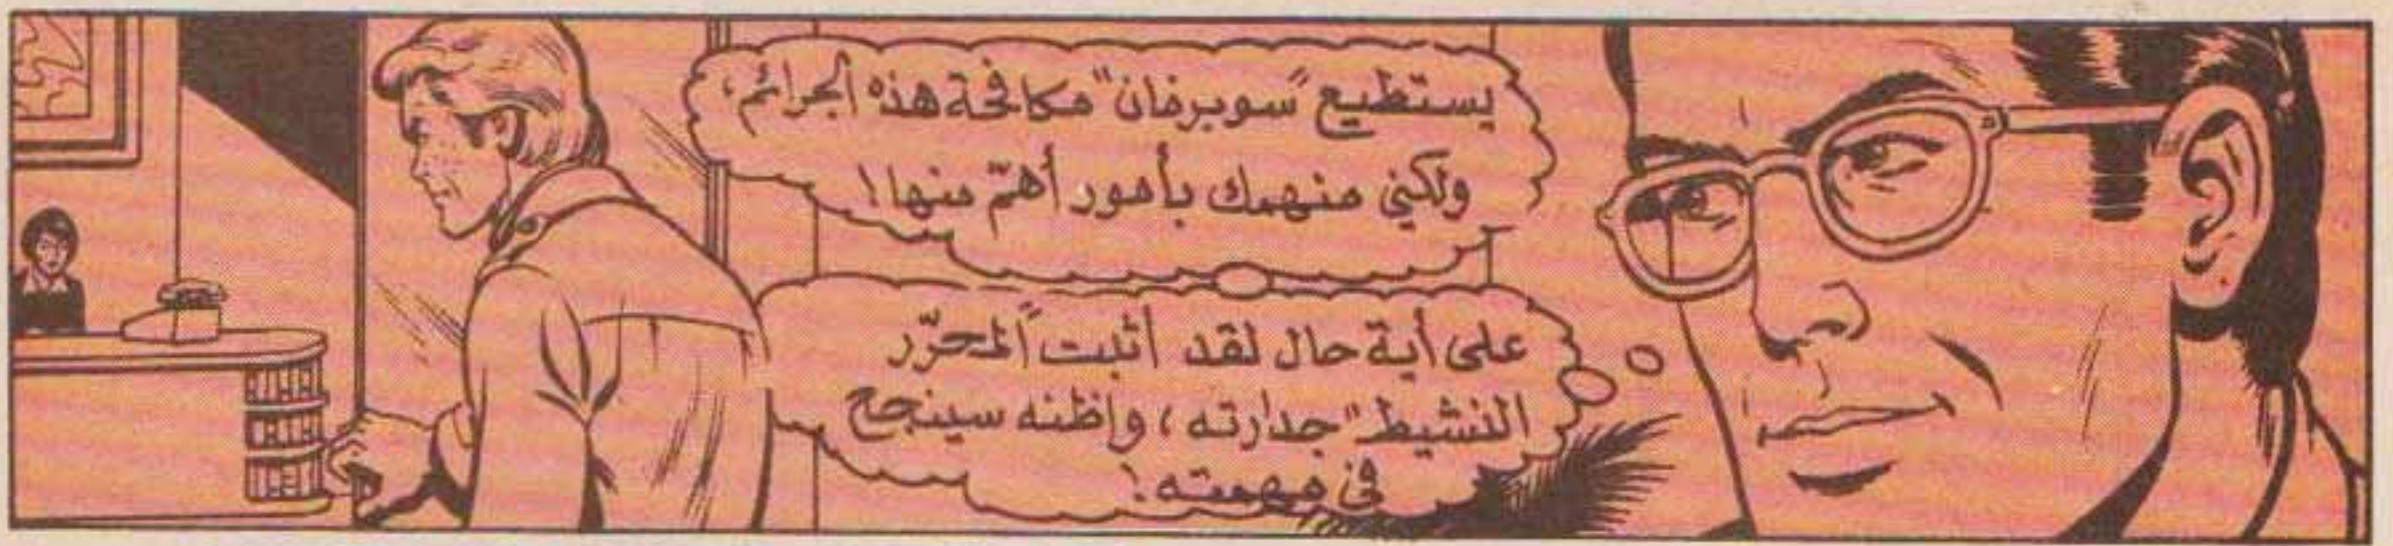 يستطيع "سوبرمان" مكافحة هذه الجرائم،
ولكني منهمك بأمور أهمّ منها!
على أية حال لقد أثبت "المحرّر
النشيط" جدارته، وأظنه سينجح
في مهمته!